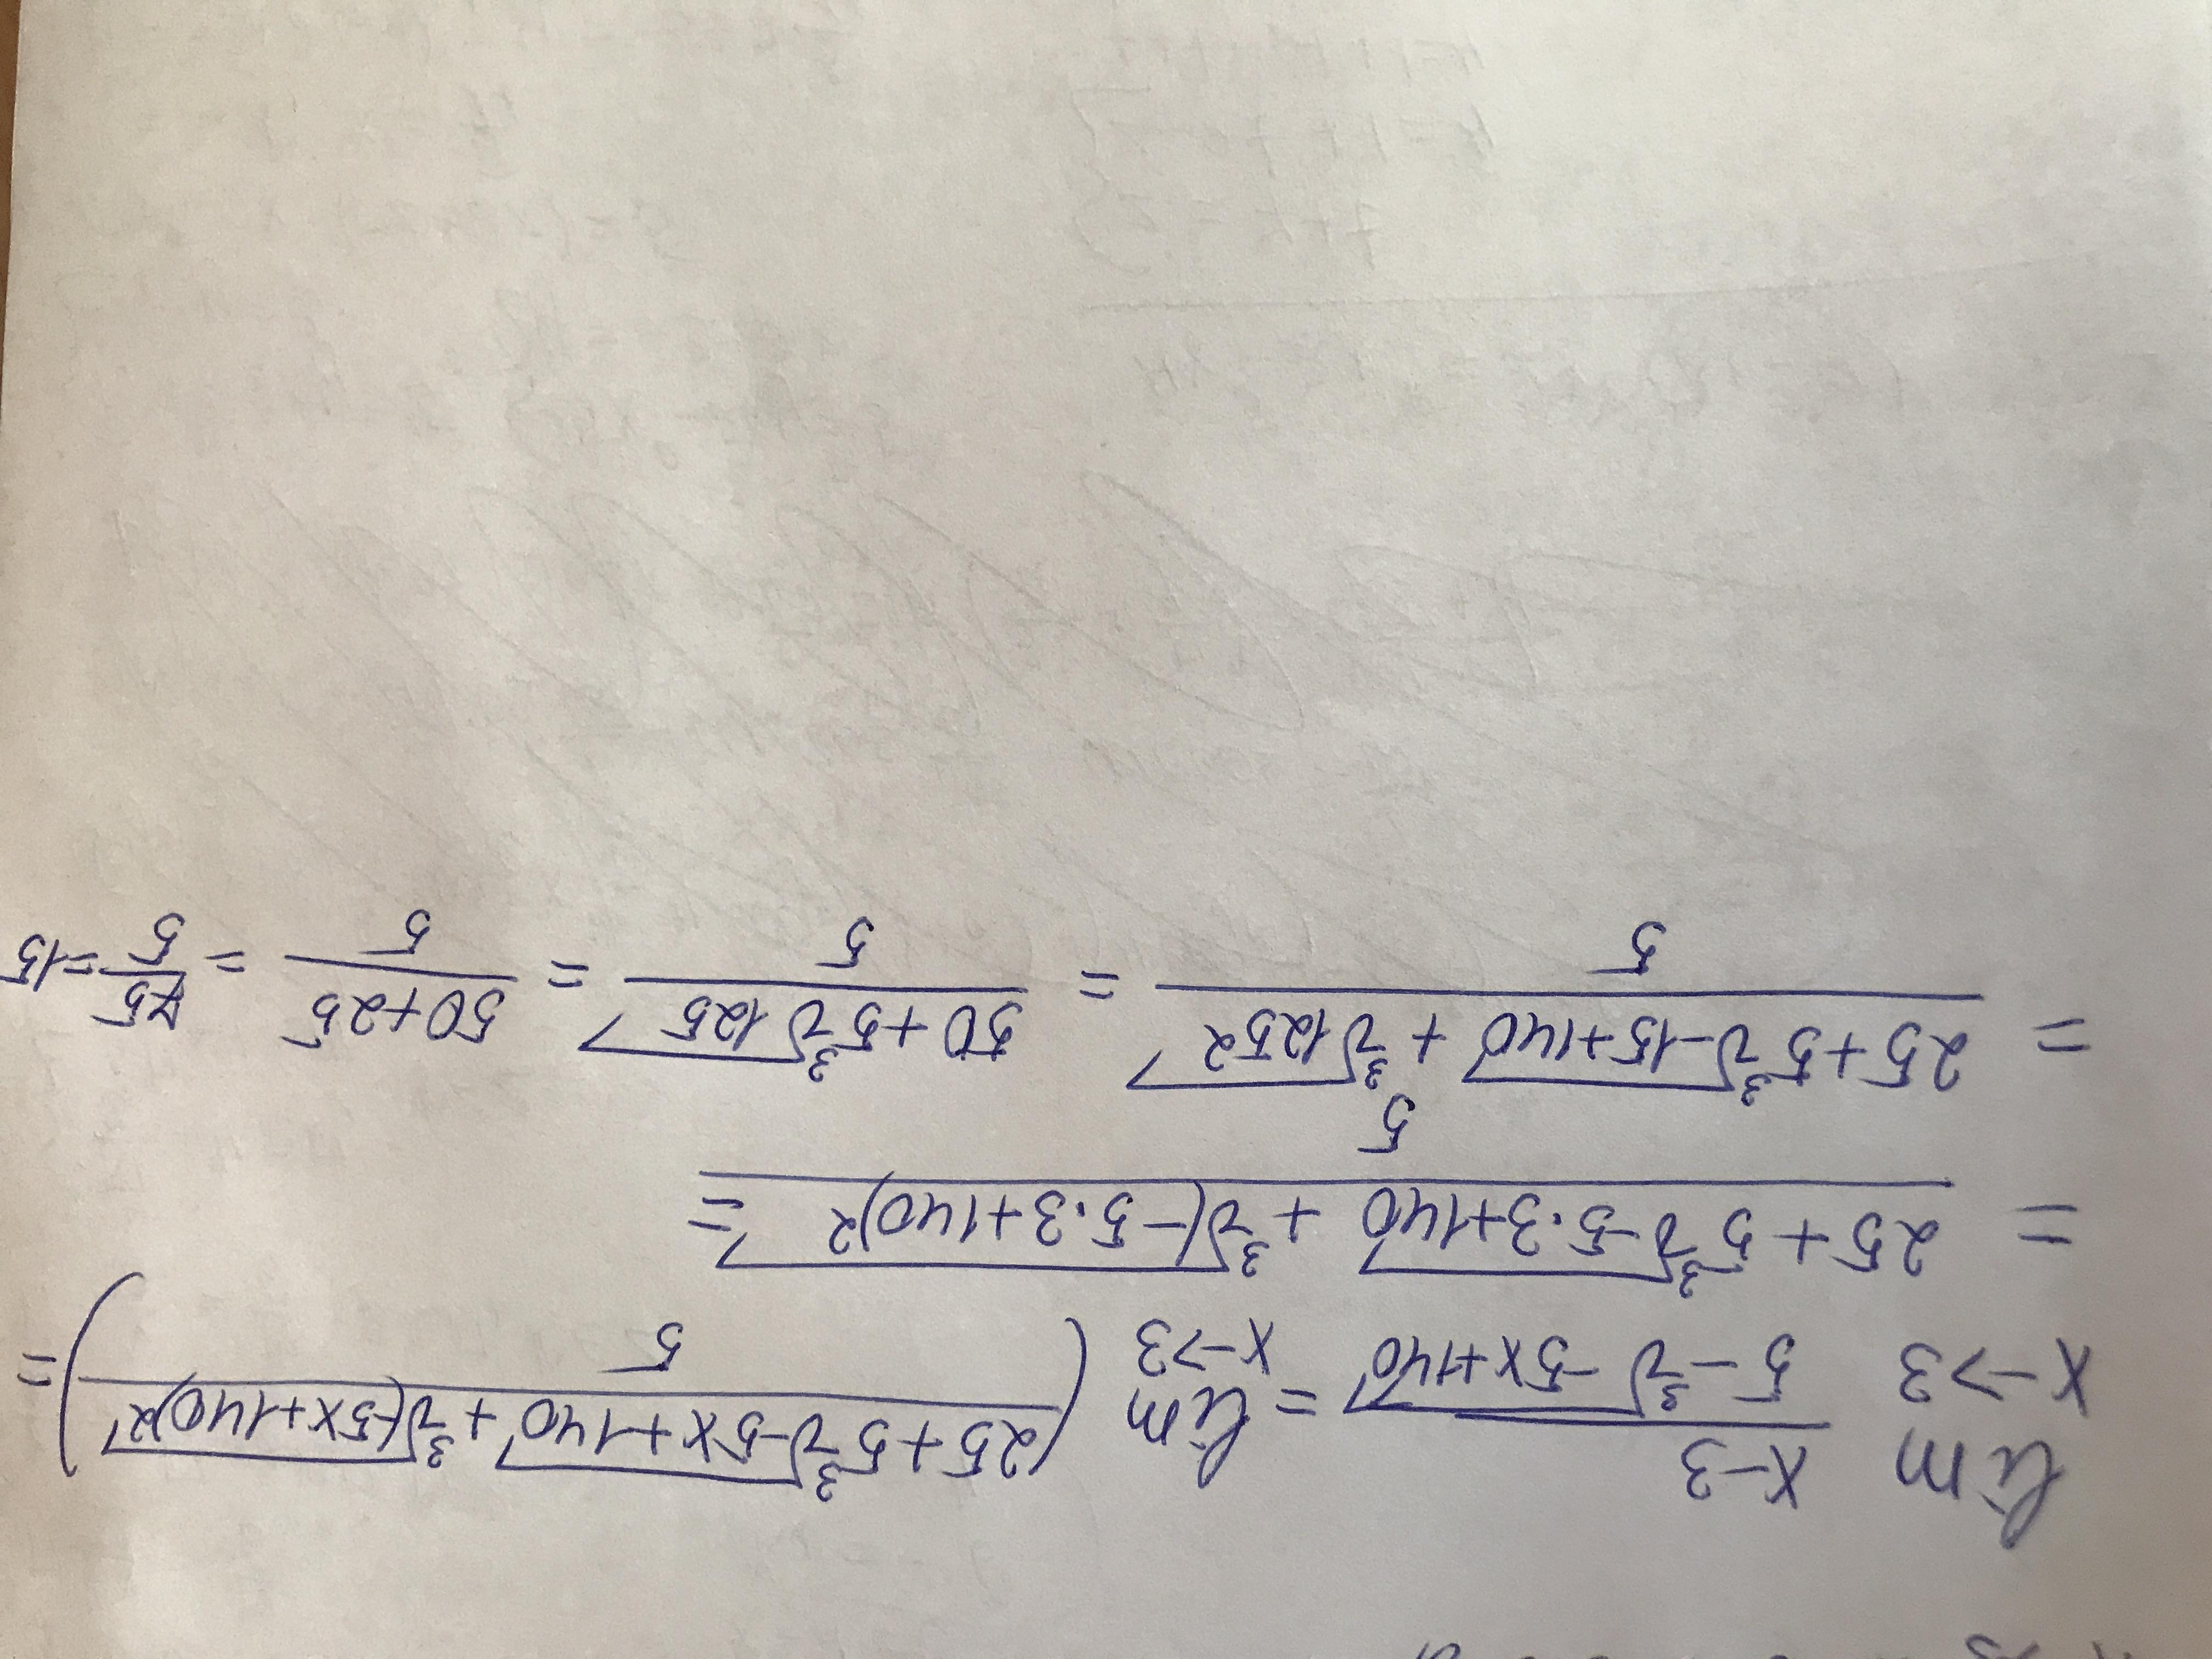 lim x→3 (x-3)/(5-∛(-5x+140)) = lim x→3 ((25+5∛(-5x+140)+∛((-5x+140)²))/5) =
= (25+5∛(-5·3+140)+∛((-5·3+140)²))/5 =
= (25+5∛(-15+140)+∛(125²))/5 = (50+5∛125)/5 = (50+25)/5 = 75/5 = 15